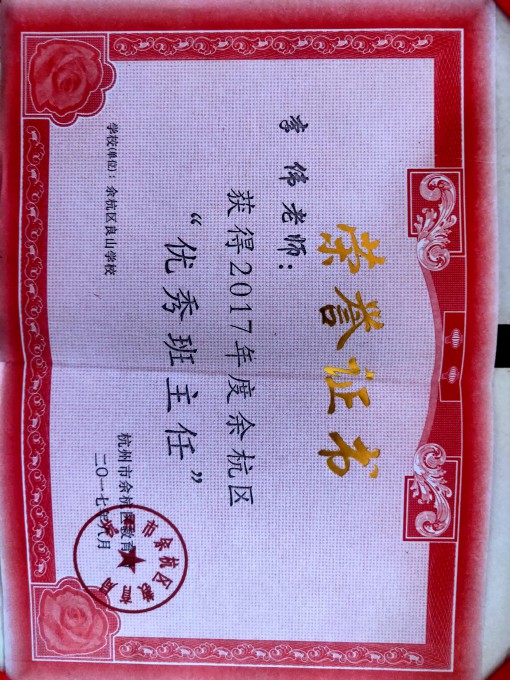 荣誉证书
李伟老师：
获得2017年度余杭区
“优秀班主任”
学校(单位)：余杭区良山学校
杭州市余杭区教育局
二〇一七年八月